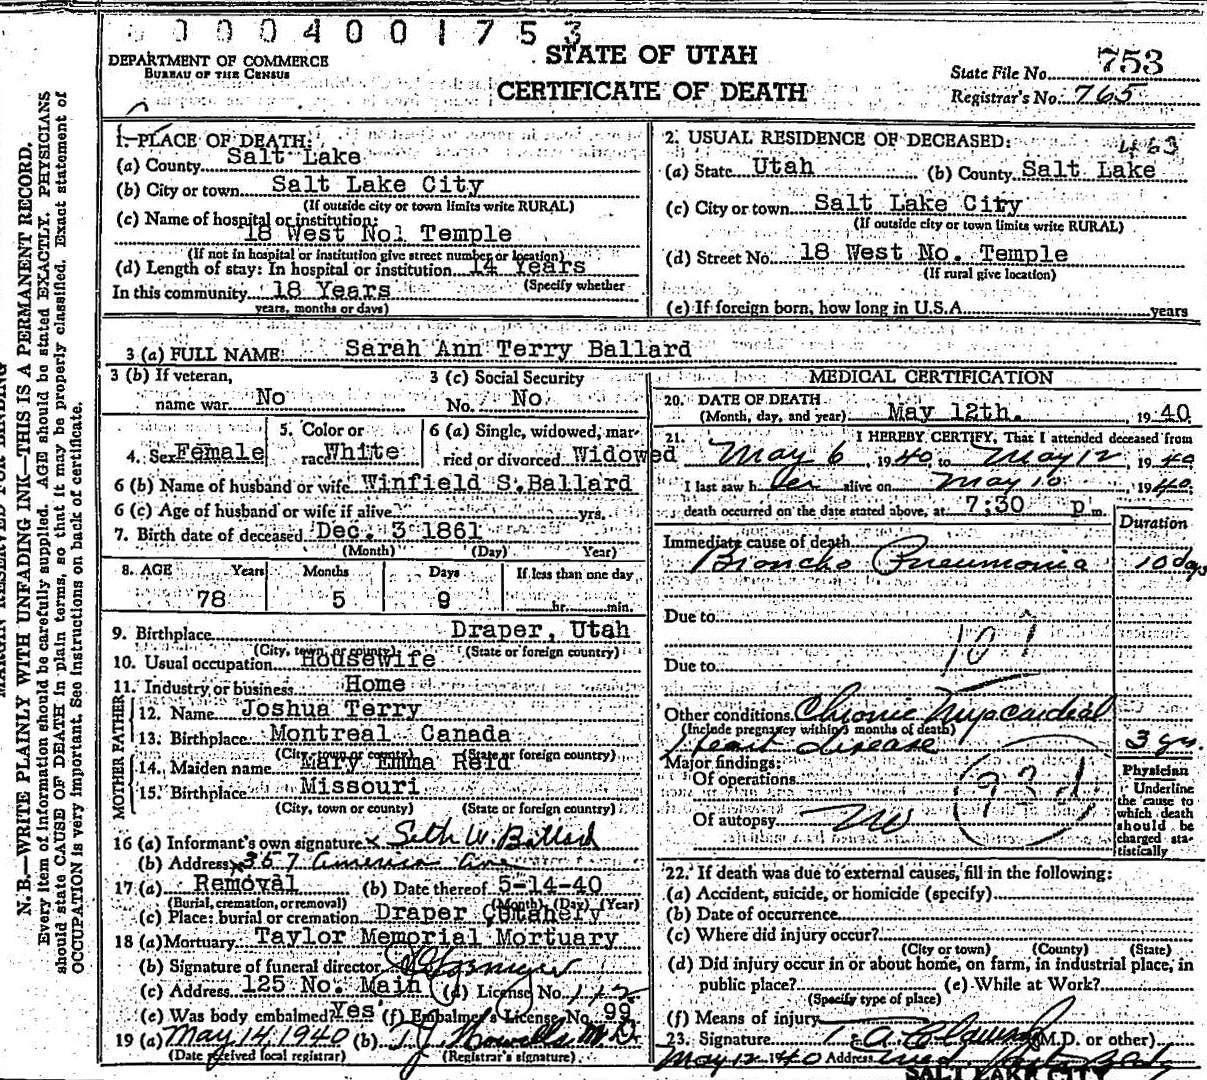 0004001753
DEPARTMENT OF COMMERCE
BUREAU OF THE CENSUS
STATE OF UTAH
CERTIFICATE OF DEATH
State File No. 753
Registrar's No. 765
1. PLACE OF DEATH:
(a) County Salt Lake
(b) City or town Salt Lake City
(If outside city or town limits write RURAL)
(c) Name of hospital or institution:
18 West No1 Temple
(If not in hospital or institution give street number or location)
(d) Length of stay: In hospital or institution 14 Years
(Specify whether
In this community 18 Years
years, months or days)
2. USUAL RESIDENCE OF DECEASED: 463
(a) State Utah (b) County Salt Lake
(c) City or town Salt Lake City
(If outside city or town limits write RURAL)
(d) Street No. 18 West No. Temple
(If rural give location)
(e) If foreign born, how long in U.S.A. years
3 (a) FULL NAME: Sarah Ann Terry Ballard
3 (b) If veteran, 3 (c) Social Security
name war No No. No.
4. Sex Female 5. Color or race White 6 (a) Single, widowed, married or divorced Widowed
6 (b) Name of husband or wife Winfield S.Ballard
6 (c) Age of husband or wife if alive yrs.
7. Birth date of deceased Dec. 3 1861
(Month) (Day) Year)
8. AGE Years Months Days If less than one day
78 5 9 hr. min.
9. Birthplace Draper, Utah
(City, town, or county) (State or foreign country)
10. Usual occupation Housewife
11. Industry or business Home
FATHER
12. Name Joshua Terry
13. Birthplace Montreal Canada
(City, town or county) (State or foreign country)
MOTHER
14. Maiden name Mary Emma Reid
15. Birthplace Missouri
(City, town or county) (State or foreign country)
16 (a) Informant's own signature x Seth W. Ballard
(b) Address x 367 America Ave
17 (a) Removal (b) Date thereof 5-14-40
(Burial, cremation, or removal) (Month) (Day) (Year)
(c) Place: burial or cremation Draper Cemetery
18 (a) Mortuary Taylor Memorial Mortuary
(b) Signature of funeral director
(c) Address 125 No. Main (d) License No. 112
(e) Was body embalmed? Yes (f) Embalmer's License No. 99
19 (a) May 14, 1940 (b) T.J. Howells M.D.
(Date received local registrar) (Registrar's signature)
MEDICAL CERTIFICATION
20. DATE OF DEATH
(Month, day, and year) May 12th. 1940
21. I HEREBY CERTIFY, That I attended deceased from
May 6, 1940 to May 12, 1940
I last saw her alive on May 10 1940
death occurred on the date stated above, at 7:30 p m.
Duration
Immediate cause of death
Broncho Pneumonia 10 days
Due to
107
Due to
Other conditions Chronic Myocardial
(Include pregnancy within 3 months of death)
Heart disease 3 yrs.
Major findings:
Of operations
93d
Of autopsy no
Physician
Underline
the cause to
which death
should be
charged sta-
tistically
22. If death was due to external causes, fill in the following:
(a) Accident, suicide, or homicide (specify)
(b) Date of occurrence
(c) Where did injury occur?
(City or town) (County) (State)
(d) Did injury occur in or about home, on farm, in industrial place, in
public place? (e) While at Work?
(Specify type of place)
(f) Means of injury
23. Signature T. A. Clawson (M.D. or other)
May 12 1940 Address
SALT LAKE CITY
MARGIN RESERVED FOR BINDING
N. B.—WRITE PLAINLY WITH UNFADING INK—THIS IS A PERMANENT RECORD.
Every item of information should be carefully supplied. AGE should be stated EXACTLY. PHYSICIANS
should state CAUSE OF DEATH in plain terms, so that it may be properly classified. Exact statement of
OCCUPATION is very important. See instructions on back of certificate.